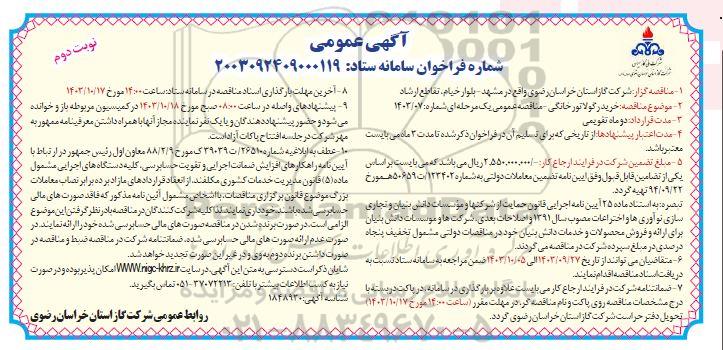 آگهی عمومی
نوبت دوم
شماره فراخوان سامانه ستاد: ۲۰۰۳۰۹۲۴۰۹۰۰۰۱۱۹
شرکت ملی گاز ایران
۱- مناقصه گزار: شرکت گاز استان خراسان رضوی واقع در مشهد - بلوار خیام، تقاطع ارشاد
۲- موضوع مناقصه: خرید رگولاتور خانگی - مناقصه عمومی یک مرحله ای شماره: ۱۴۰۳/۰۷
۳- مدت قرارداد: دو ماه تقویمی
۴- مدت اعتبار پیشنهادها: از تاریخی که برای تسلیم آن در فراخوان ذکر شده تا مدت ۳ ماه می بایست
معتبر باشد.
۵- مبلغ تضمین شرکت در فرایند ارجاع کار: ۲,۵۵۰,۰۰۰,۰۰۰/- ریال می باشد که می بایست بر اساس
یکی از تضامین قابل قبول وفق آیین نامه تضمین معاملات دولتی به شماره ۱۲۳۴۰۲/ت۵۰۶۵۹هـ مورخ
۹۴/۰۹/۲۲ تهیه گردد.
تبصره: به استناد ماده ۲۵ آیین نامه اجرایی قانون حمایت از شرکتها و مؤسسات دانش بنیان و تجاری
سازی نوآوری ها و اختراعات مصوب سال ۱۳۹۱ و اصلاحات بعدی، شرکت ها و موسسات دانش بنیان
برای ارائه و فروش محصولات و خدمات دانش بنیان خود در مناقصات دولتی مشمول تخفیف پنجاه
درصدی در مبلغ سپرده شرکت در مناقصه می گردند.
۶- متقاضیان می توانند از تاریخ ۱۴۰۳/۰۹/۲۷ الی ۱۴۰۳/۱۰/۰۵ ضمن مراجعه به سامانه ستاد نسبت به
دریافت اسناد مناقصه اقدام نمایند.
۷- ضمانتنامه شرکت در فرایند ارجاع کار می بایست علاوه بر بارگذاری در سامانه، در پاکت دربسته با
درج مشخصات مناقصه روی پاکت و نام مناقصه گر، در مهلت مقرر (ساعت ۱۴:۰۰ مورخ ۱۴۰۳/۱۰/۱۷)
تحویل دفتر حراست شرکت گاز استان خراسان رضوی گردد.
۸- آخرین مهلت بارگذاری اسناد مناقصه در سامانه ستاد: ساعت ۱۴:۰۰ مورخ ۱۴۰۳/۱۰/۱۷
۹- پیشنهادهای واصله در ساعت ۰۸:۰۰ صبح مورخ ۱۴۰۳/۱۰/۱۸ در کمیسیون مربوطه باز و خوانده
می شود و حضور پیشنهاد دهندگان و یا یک نفر نماینده مجاز آنها با همراه داشتن معرفینامه ممهور به
مهر شرکت در جلسه افتتاح پاکات آزاد است.
۱۰- عطف به ابلاغیه شماره ۲۶۵۱۰/ت۳۹۰۳۹ک مورخ ۸۸/۲/۹ معاون اول رئیس جمهور در ارتباط با
آیین نامه راهکارهای افزایش ضمانت اجرایی و تقویت حسابرسی، کلیه دستگاه های اجرایی مشمول
ماده (۵) قانون مدیریت خدمات کشوری مکلفند، از انعقاد قراردادهای مازاد بر ده برابر نصاب معاملات
بزرگ موضوع قانون برگزاری مناقصات، با اشخاص مشمول آئین نامه مذکور که فاقد صورت های مالی
حسابرسی شده باشند، خودداری نمایند. لذا کلیه شرکت کنندگان در مناقصه با در نظر گرفتن این موضوع
الزامی است، در صورت برنده شدن در مناقصه صورت های مالی حسابرسی شده خود را ارائه نمایند. در
صورت عدم ارائه صورت های مالی حسابرسی شده، ضمانتنامه شرکت در مناقصه ضبط و مناقصه در
صورت داشتن برنده دوم به وی و در غیر این صورت تجدید خواهد شد.
شایان ذکر است دسترسی به متن این آگهی، در سایت WWW.nigc-khrz.ir امکان پذیر بوده و در صورت
نیاز به کسب اطلاعات بیشتر با تلفن: ۳۷۰۷۲۲۱۳-۰۵۱ تماس بگیرید.
شناسه آگهی: ۱۸۴۸۹۳۰
روابط عمومی شرکت گاز استان خراسان رضوی
۰۲۱-۸۸۳۴۹۶۷۰-۵